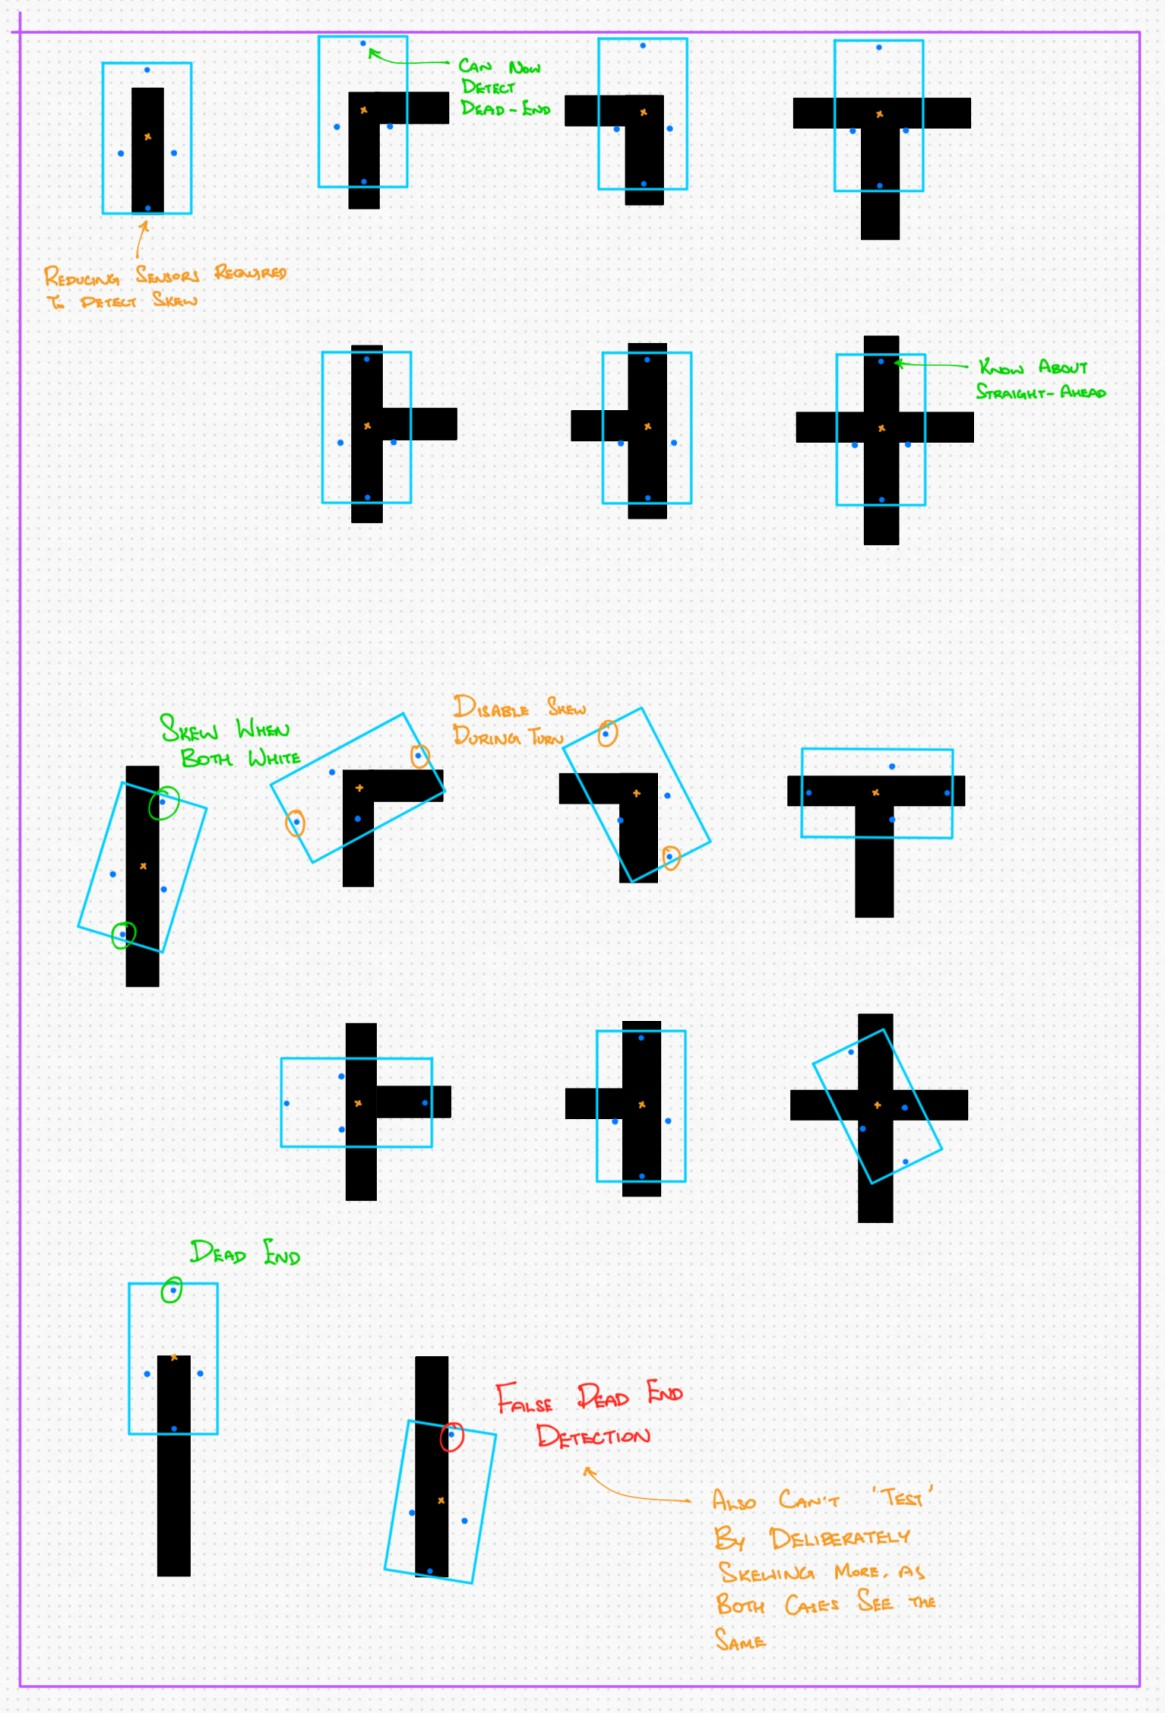 Can Now
Detect
Dead-End
Reducing Sensors Required
To Detect Skew
Know About
Straight-Ahead
Skew When
Both White
Disable Skew
During Turn
Dead End
False Dead End
Detection
Also Can't 'Test'
By Deliberately
Skewing More, as
Both Cases See the
Same